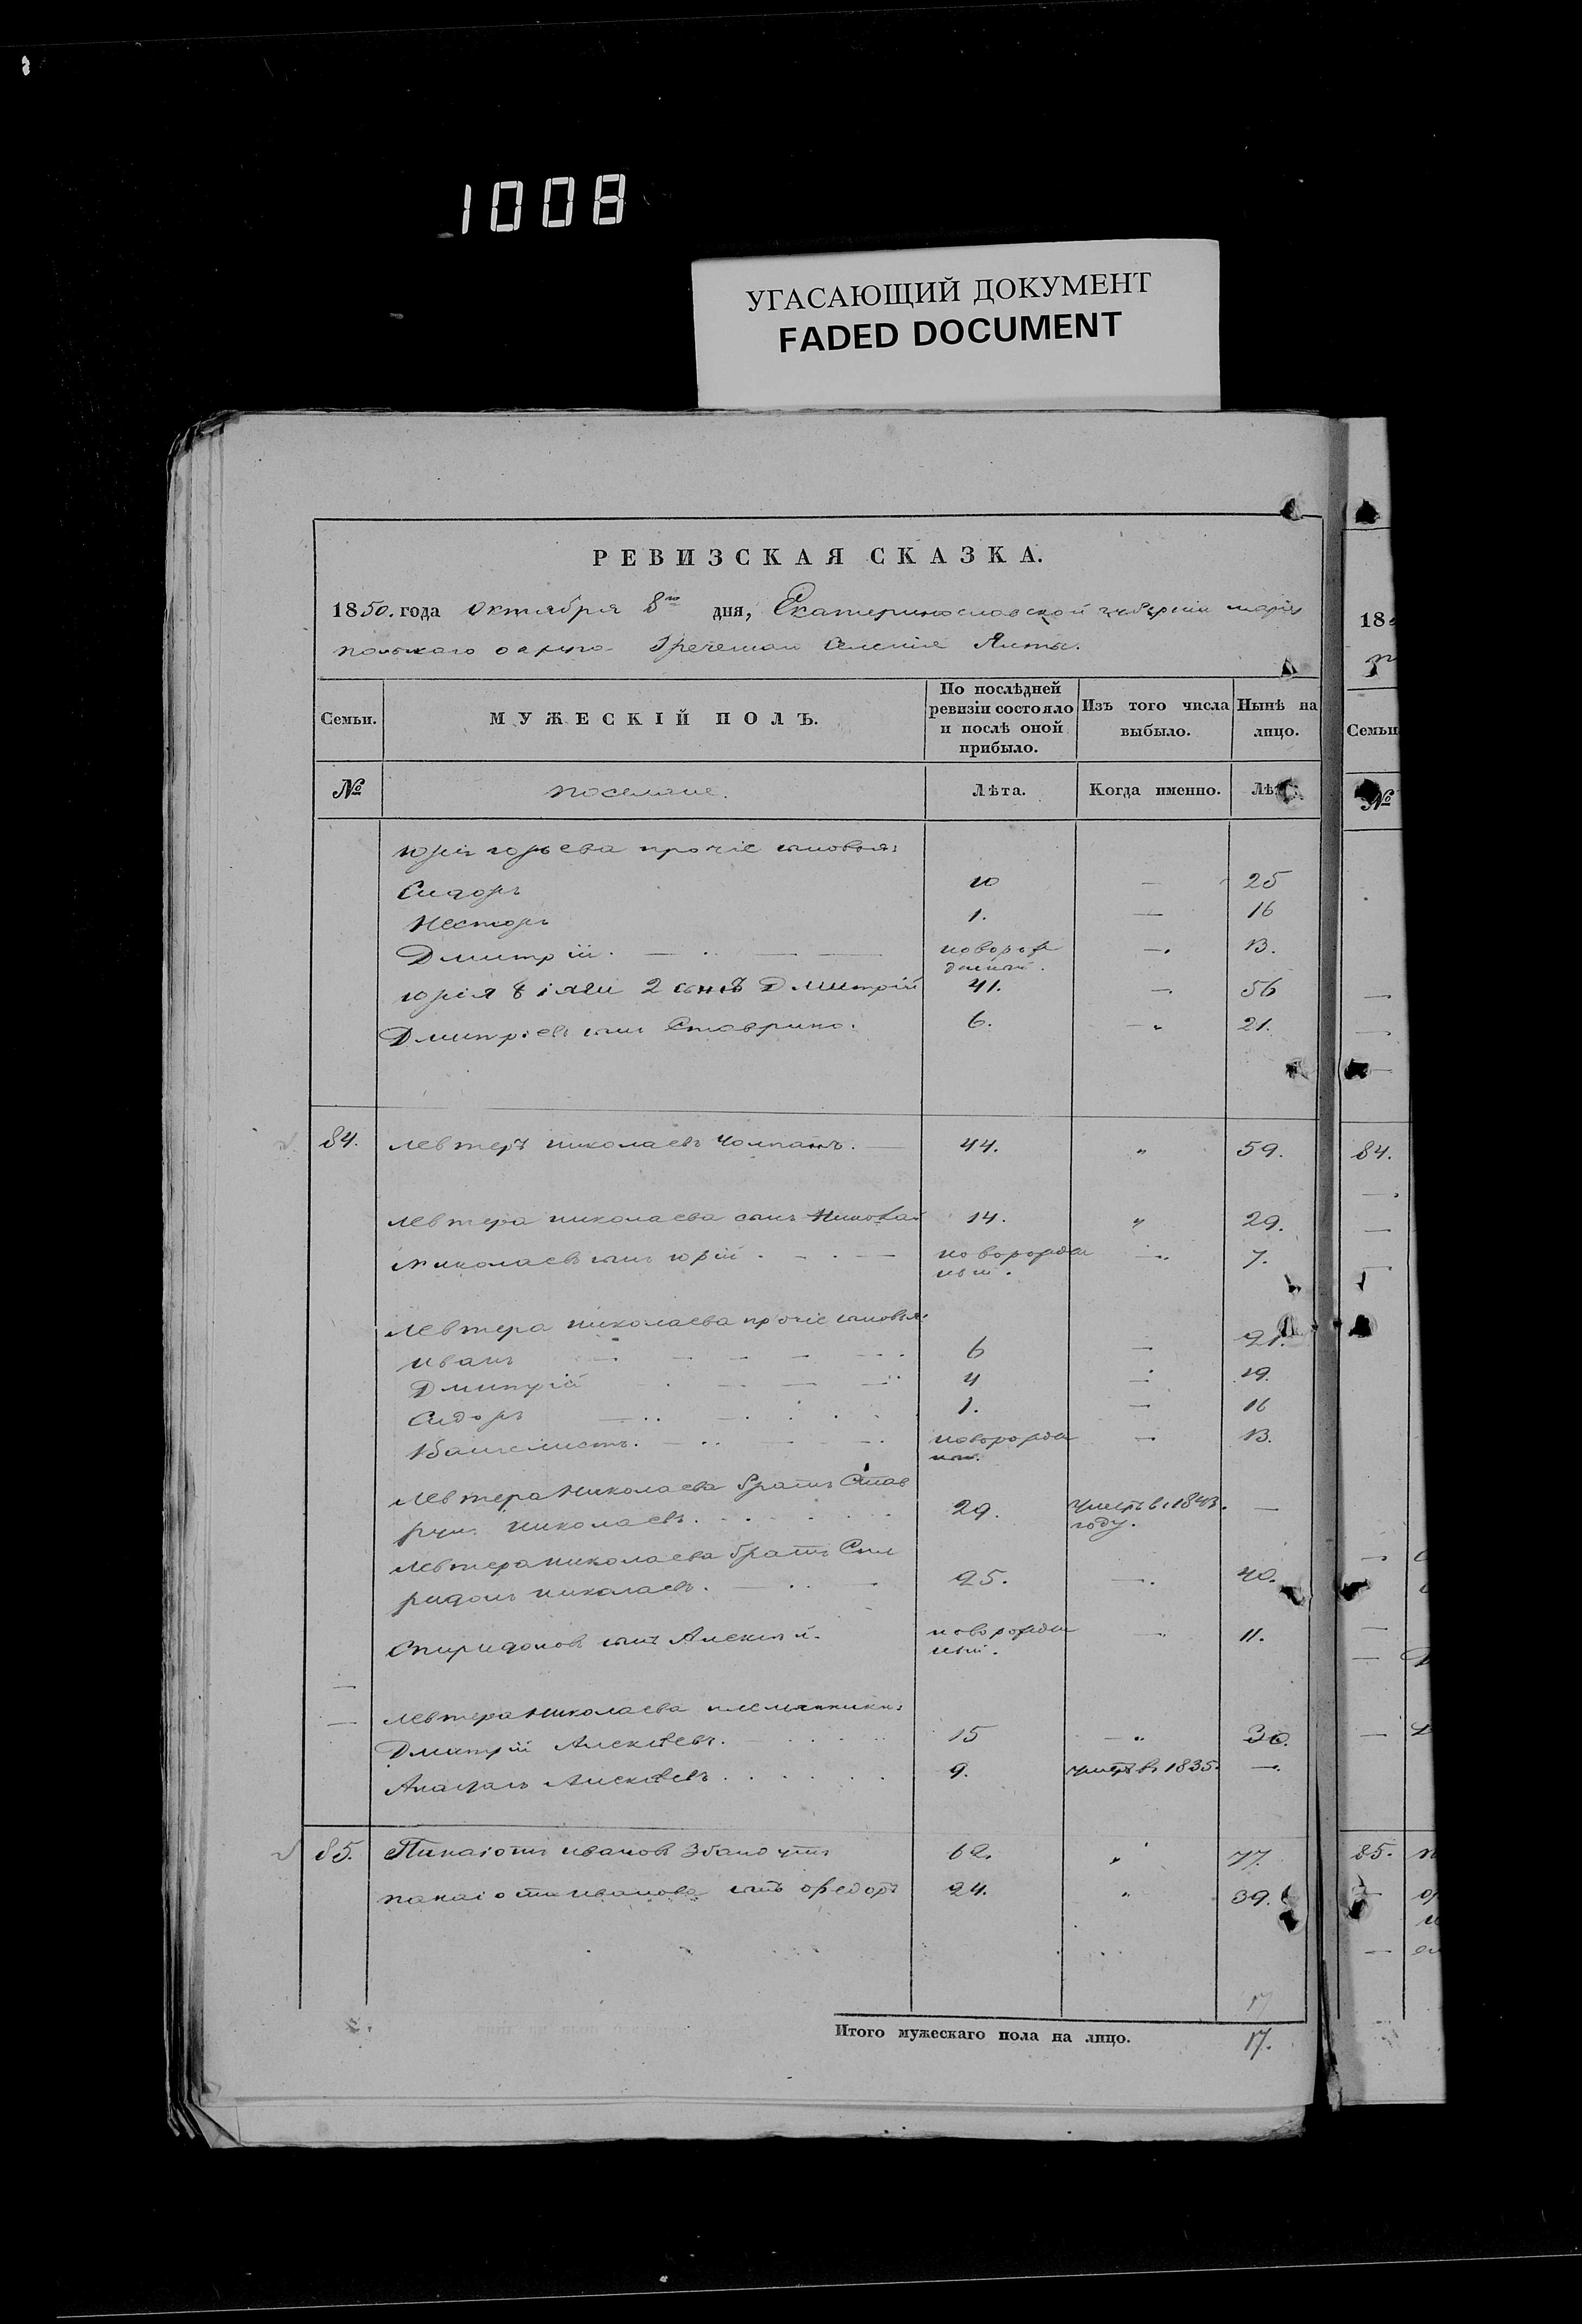 1008
УГАСАЮЩИЙ ДОКУМЕНТ
FADED DOCUMENT
РЕВИЗСКАЯ СКАЗКА.
1850. года Октября 8го дня, Екатеринославской губерніи Маріу
польскаго округа Греческаго Селенія Ялты.
Семьи. МУЖЕСКІЙ ПОЛЪ. По послѣдней ревизіи состояло и послѣ оной прибыло. Изъ того числа выбыло. Нынѣ на лицо.
№ поселяне. Лѣта. Когда именно.
Юрія Юрьева прочіе сыновья:
Сидоръ 10 — 25
Несторъ 1. — 16
Дмитрій. новорож денный. — 13.
Юрія 2 сынъ Дмитрій 41. — 56
Дмитріевъ сынъ Ставрино. 6. — 21.
84. Левтеръ Николаевъ Чолпанъ. 44. „ 59.
Левтера Николаева сынъ Николай 14. „ 29.
Николаевъ сынъ Юрій. новорожден ный. — 7.
Левтера Николаева прочіе сыновья:
Иванъ 6 — 21.
Дмитрій 4 — 19.
Сидоръ 1. — 16
новорожден ный. — 13.
Левтера Николаева братъ Став
Николаевъ. 29. умеръ въ 1843. году. —
Левтера Николаева братъ Спи
ридонъ Николаевъ. 25. — 40.
Спиридоновъ сынъ Алексѣй. новорожден ный. — 11.
Левтера Николаева племянники:
Дмитрій Алексѣевъ. 15 — 30.
Алексѣевъ 9. умеръ въ 1835. —
85. Панаіотъ Ивановъ 62. „ 77.
Панаіота Иванова сынъ Федоръ 24. „ 39.
17
Итого мужескаго пола на лицо. 17.
18
Семьи
№
84.
85.